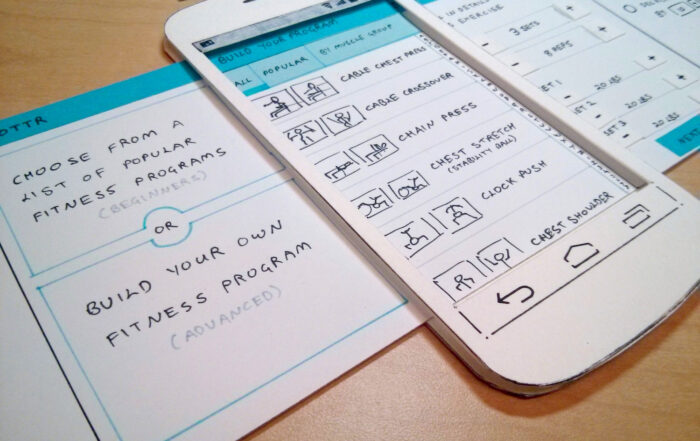 OTTR
CHOOSE FROM A
LIST OF POPULAR
FITNESS PROGRAMS
(BEGINNERS)
OR
BUILD YOUR OWN
FITNESS PROGRAM
(ADVANCED)
BUILD YOUR PROGRAM
ALL POPULAR BY MUSCLE GROUP
CABLE CHEST PRESS
CABLE CROSSOVER
CHAIN PRESS
CHEST STRETCH
(STABILITY BALL)
CLOCK PUSH
CHEST SHOULDER
IN DETAILS
EXERCISE
- 3 SETS +
- 8 REPS +
SET 1 - 20 LBS +
SET 2 - 20 LBS +
SET 3 - 20 LBS +
NEXT